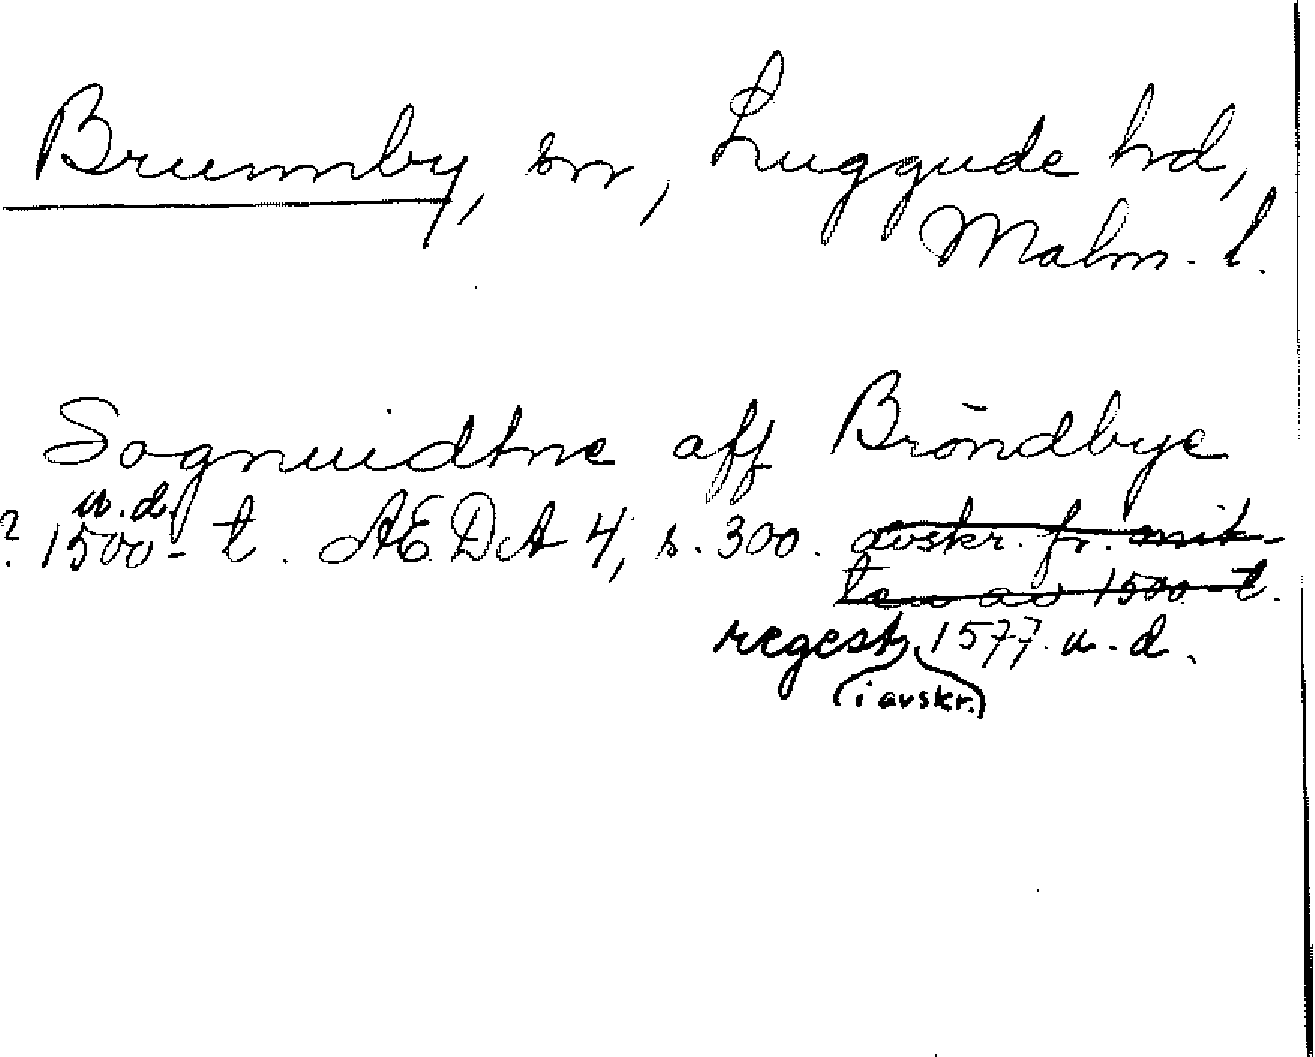 Brunnby, sn, Luggude hd,
Malm. l.
Sognuidtne aff Bröndbye
u. d.
? 1500-t. AEDA 4, s. 300. avskr. fr. mit-
ten av 1500-t.
regest, 1577 u. d.
(i avskr.)